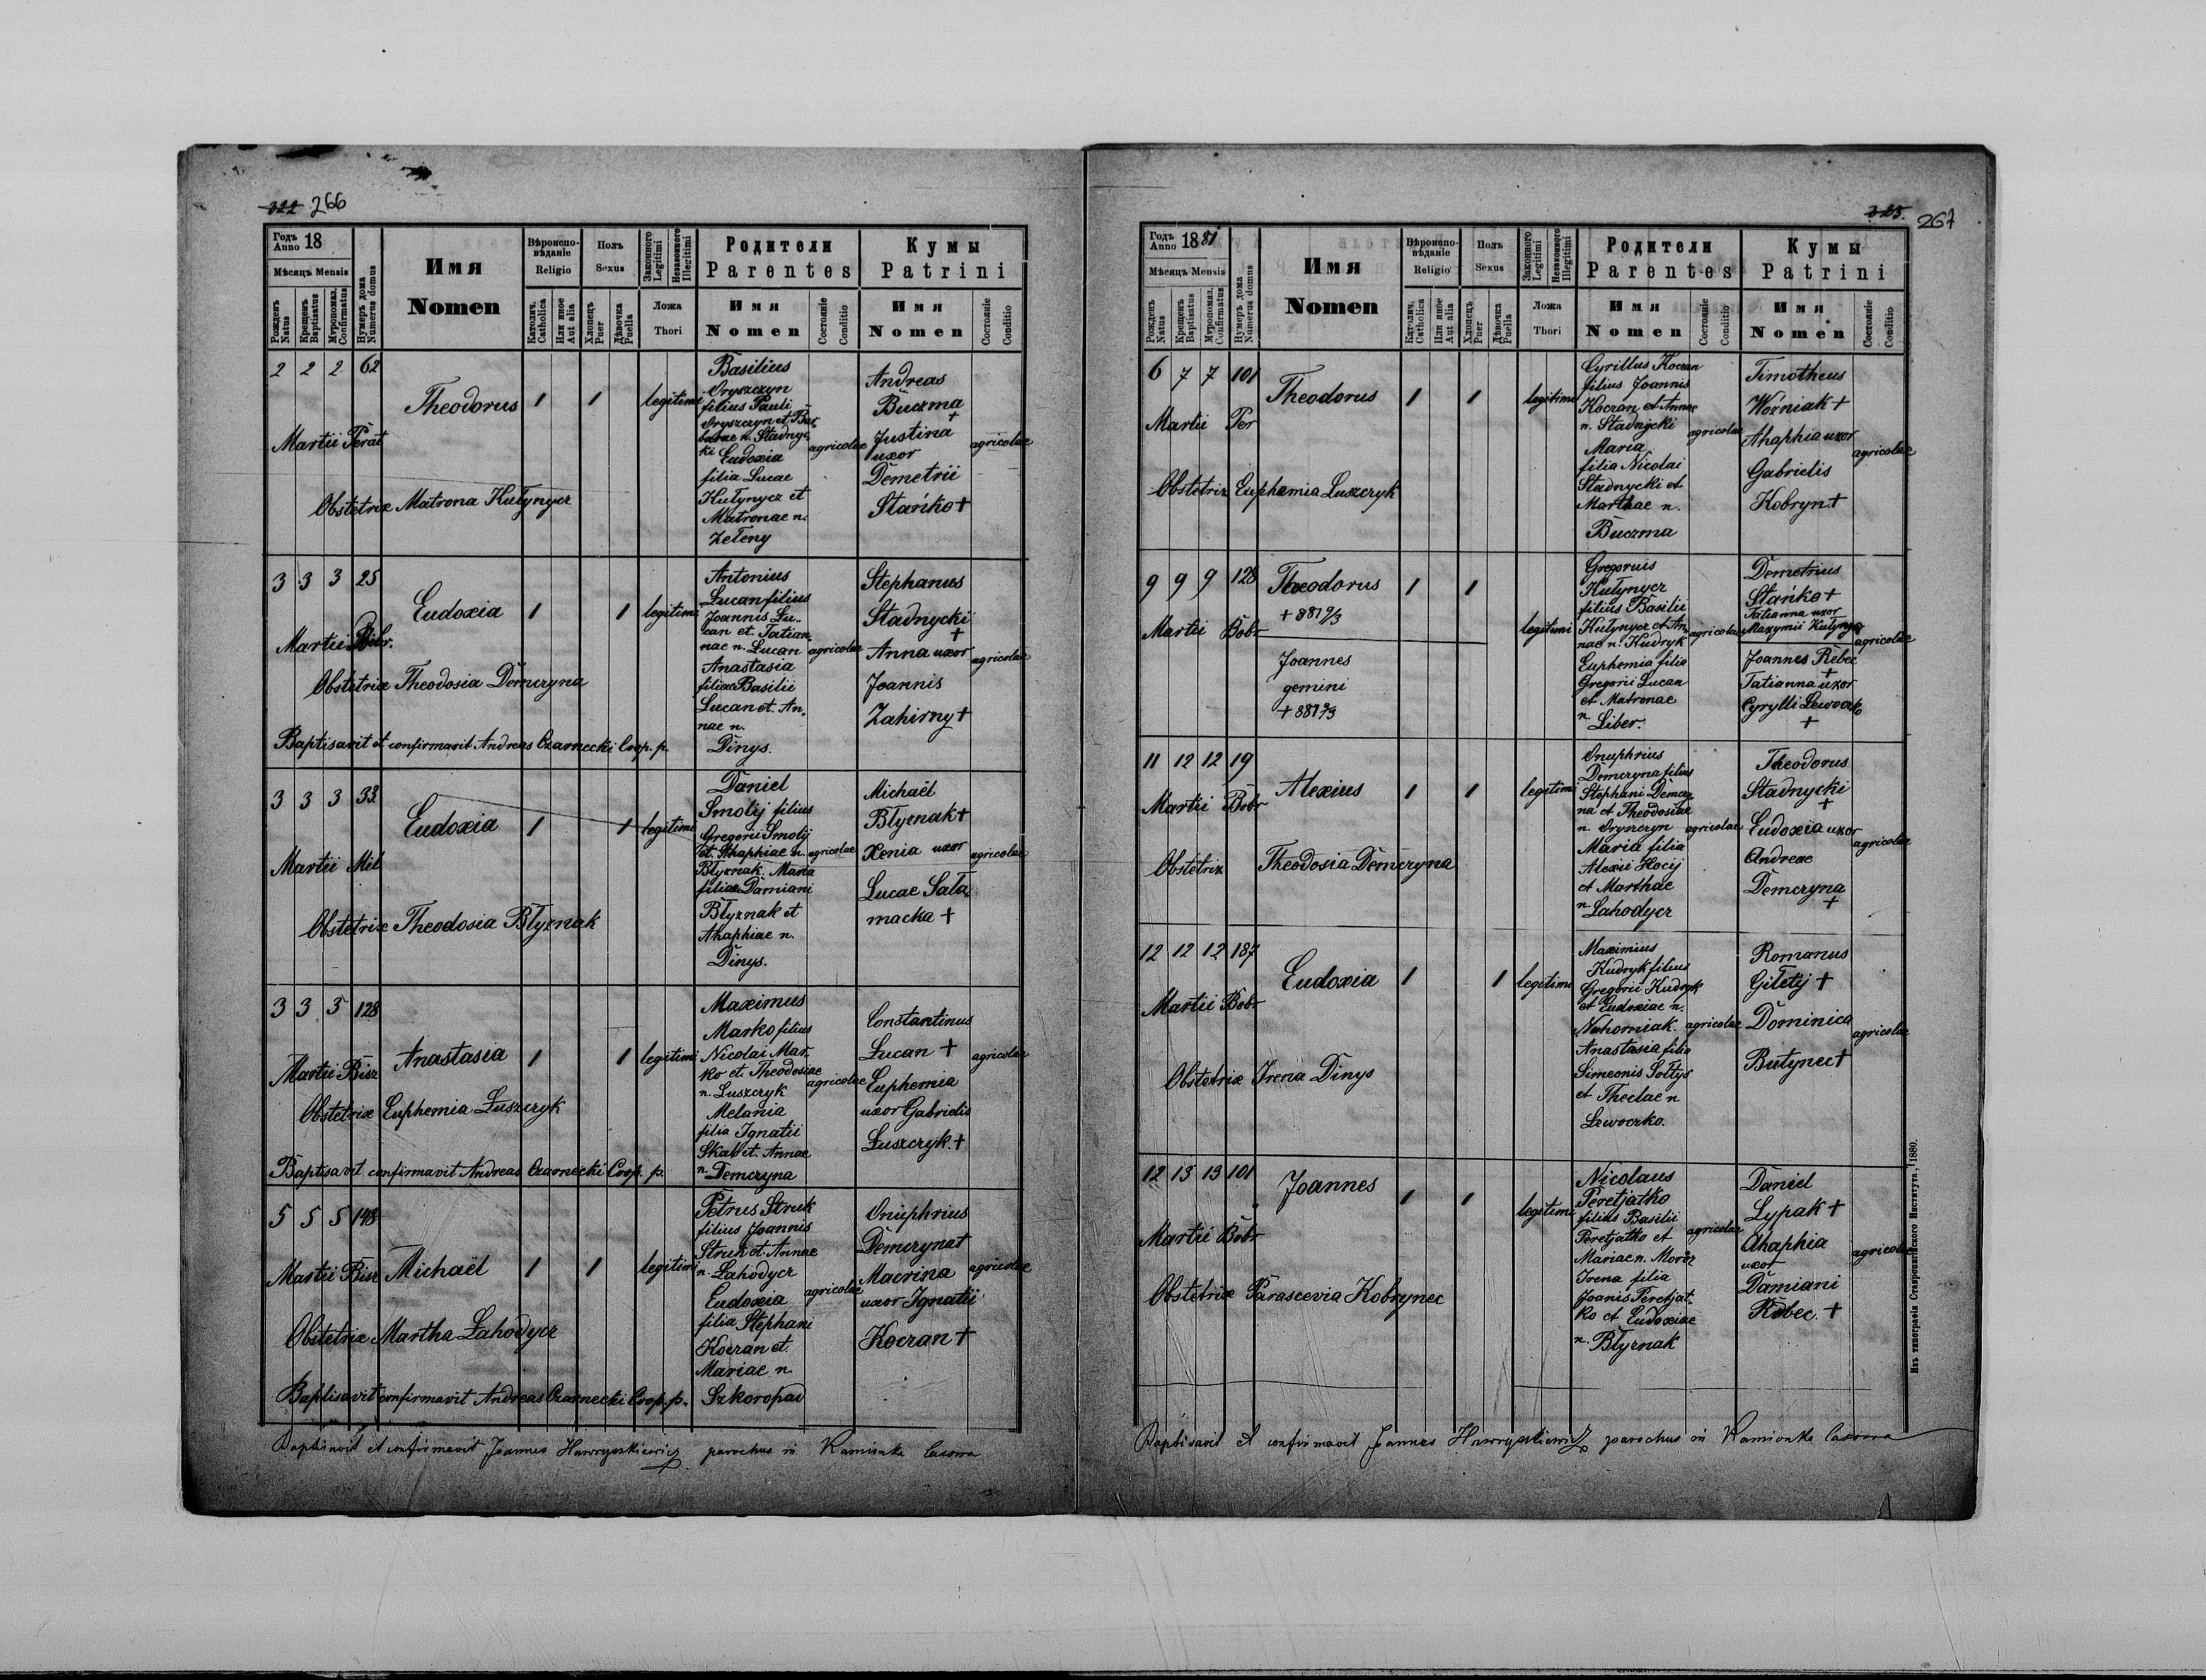 322 266
Годъ Anno 18
Мѣсяцъ Mensis
Рожденъ Natus
Крещенъ Baptisatus
Муропомаз. Confirmatus
Нумеръ дома Numerus domus
Имя Nomen
Вѣроисповѣданіе Religio
Католич. Catholica
Или иное Aut alia
Полъ Sexus
Хлопецъ Puer
Дѣвочка Puella
Законного Legitimi
Незаконного Illegitimi
Ложа Thori
Родители Parentes
Имя Nomen
Состояніе Conditio
Кумы Patrini
Имя Nomen
Состояніе Conditio
2 2 2 62
Martii Perat
Theodorus 1 1 legitimi
Basilius
Oryszczyn
filius Pauli
Oryszczyn et Bar
barae n. Stadnyc
ki Eudoxia
filia Lucae
Kułynycz et
Matronae n.
Zełeny
agricolae
Andreas
Buczma
+
Justina
uxor
Demetrii
Stańko +
agricolae
Obstetrix Matrona Kułynycz
3 3 3 25
Martii Bobr.
Eudoxia 1 1 legitimi
Antonius
Łucan filius
Joannis Łu-
can et Tatian
nae n. Łucan
Anastasia
filia Basilii
Łucan et An-
nae n.
Dinys.
agricolae
Stephanus
Stadnycki
+
Anna uxor
Joannis
Zahirny +
agricolae
Obstetrix Theodosia Demczyna
Baptisavit et confirmavit Andreas Czarnecki Coop. p.
3 3 3 33
Martii Mil
Eudoxia 1 1 legitimi
Daniel
Smolij filius
Gregorii Smolij
et Ahaphiae n.
Błyznak Maria
filia Damiani
Błyznak et
Ahaphiae n.
Dinys.
agricolae
Michaël
Błyznak +
Xenia uxor
Lucae Sała
macka +
agricolae
Obstetrix Theodosia Błyznak
3 3 3 128
Martii Bisz
Anastasia 1 1 legitimi
Maximus
Marko filius
Nicolai Mar-
ko et Theodosiae
n. Łuszczyk
Melania
filia Ignatii
Skab et Annae
n. Demczyna
agricolae
Constantinus
Łucan +
Euphemia
uxor Gabrielis
Łuszczyk +
agricolae
Obstetrix Euphemia Łuszczyk
Baptisavit confirmavit Andreas Czarnecki Coop. p.
5 5 5 148
Martii Bisz
Michaël 1 1 legitimi
Petrus Struk
filius Joannis
Struk et Annae
n. Łahodycz
Eudoxia
filia Stephani
Koczan et
Mariae n.
Szkoropad
agricolae
Onuphrius
Demczyna +
Macrina
uxor Ignatii
Koczan +
agricolae
Obstetrix Martha Łahodycz
Baptisavit confirmavit Andreas Czarnecki Coop. p.
Baptisavit et confirmavit Joannes Hawryszkiewicz parochus in Kamionka
325. 267
Годъ Anno 1881
Мѣсяцъ Mensis
Рожденъ Natus
Крещенъ Baptisatus
Муропомаз. Confirmatus
Нумеръ дома Numerus domus
Имя Nomen
Вѣроисповѣданіе Religio
Католич. Catholica
Или иное Aut alia
Полъ Sexus
Хлопецъ Puer
Дѣвочка Puella
Законного Legitimi
Незаконного Illegitimi
Ложа Thori
Родители Parentes
Имя Nomen
Состояніе Conditio
Кумы Patrini
Имя Nomen
Состояніе Conditio
6 7 7 101
Martii Per
Theodorus 1 1 legitimi
Cyrillus Koczan
filius Joannis
Koczan et Annae
n. Stadnycki
Maria
filia Nicolai
Stadnycki et
Marthae n.
Buczma
agricolae
Timotheus
Wozniak +
Ahaphia uxor
Gabrielis
Kobryn +
agricolae
Obstetrix Euphemia Łuszczyk
9 9 9 128
Martii Bobr
Theodorus 1 1
+ 881 9/3
Joannes
gemini
legitimi
Gregorius
Kułynycz
filius Basilii
Kułynycz et An-
nae n. Kudryk
Euphemia filia
Gregorii Łucan
et Matronae
n. Liber.
agricolae
Demetrius
Stańko +
Tatianna uxor
Maxymii Kułynycz
Joannes Rebec
+
Tatianna uxor
Cyrylli Lewoczko
+
agricolae
11 12 12 19
Martii Bobr
Alexius 1 1 legitimi
Onuphrius
Demczyna filius
Stephani Demczy
na et Theodosiae
n. Oryszczyn
Maria filia
Alexii Hocij
et Marthae
n. Łahodycz
agricolae
Theodorus
Stadnycki
+
Eudoxia uxor
Andreae
Demczyna
+
agricolae
Obstetrix Theodosia Demczyna
12 12 12 187
Martii Bobr
Eudoxia 1 1 legitimi
Maximius
Kudryk filius
Gregorii Kudryk
et Eudoxiae n.
Nahorniak.
Anastasia filia
Simeonis Sołtys
et Theclae n
Lewoczko.
agricolae
Romanus
Giletij +
Dominica
Butynec +
agricolae
Obstetrix Irena Dinys
12 13 13 101
Martii Bobr
Joannes 1 1 legitimi
Nicolaus
Peretjatko
filius Basilii
Peretjatko et
Mariae n. Moroz
Irena filia
Joanis Peretjat-
ko et Eudoxiae
n. Błyznak
agricolae
Daniel
Łypak +
Ahaphia
uxor
Damiani
Rebec. +
agricolae
Obstetrix Parascevia Kobrynec
Baptisavit et confirmavit Joannes Hawryszkiewicz parochus in Kamionka
Изъ типографіи Ставропигійского Института, 1880.